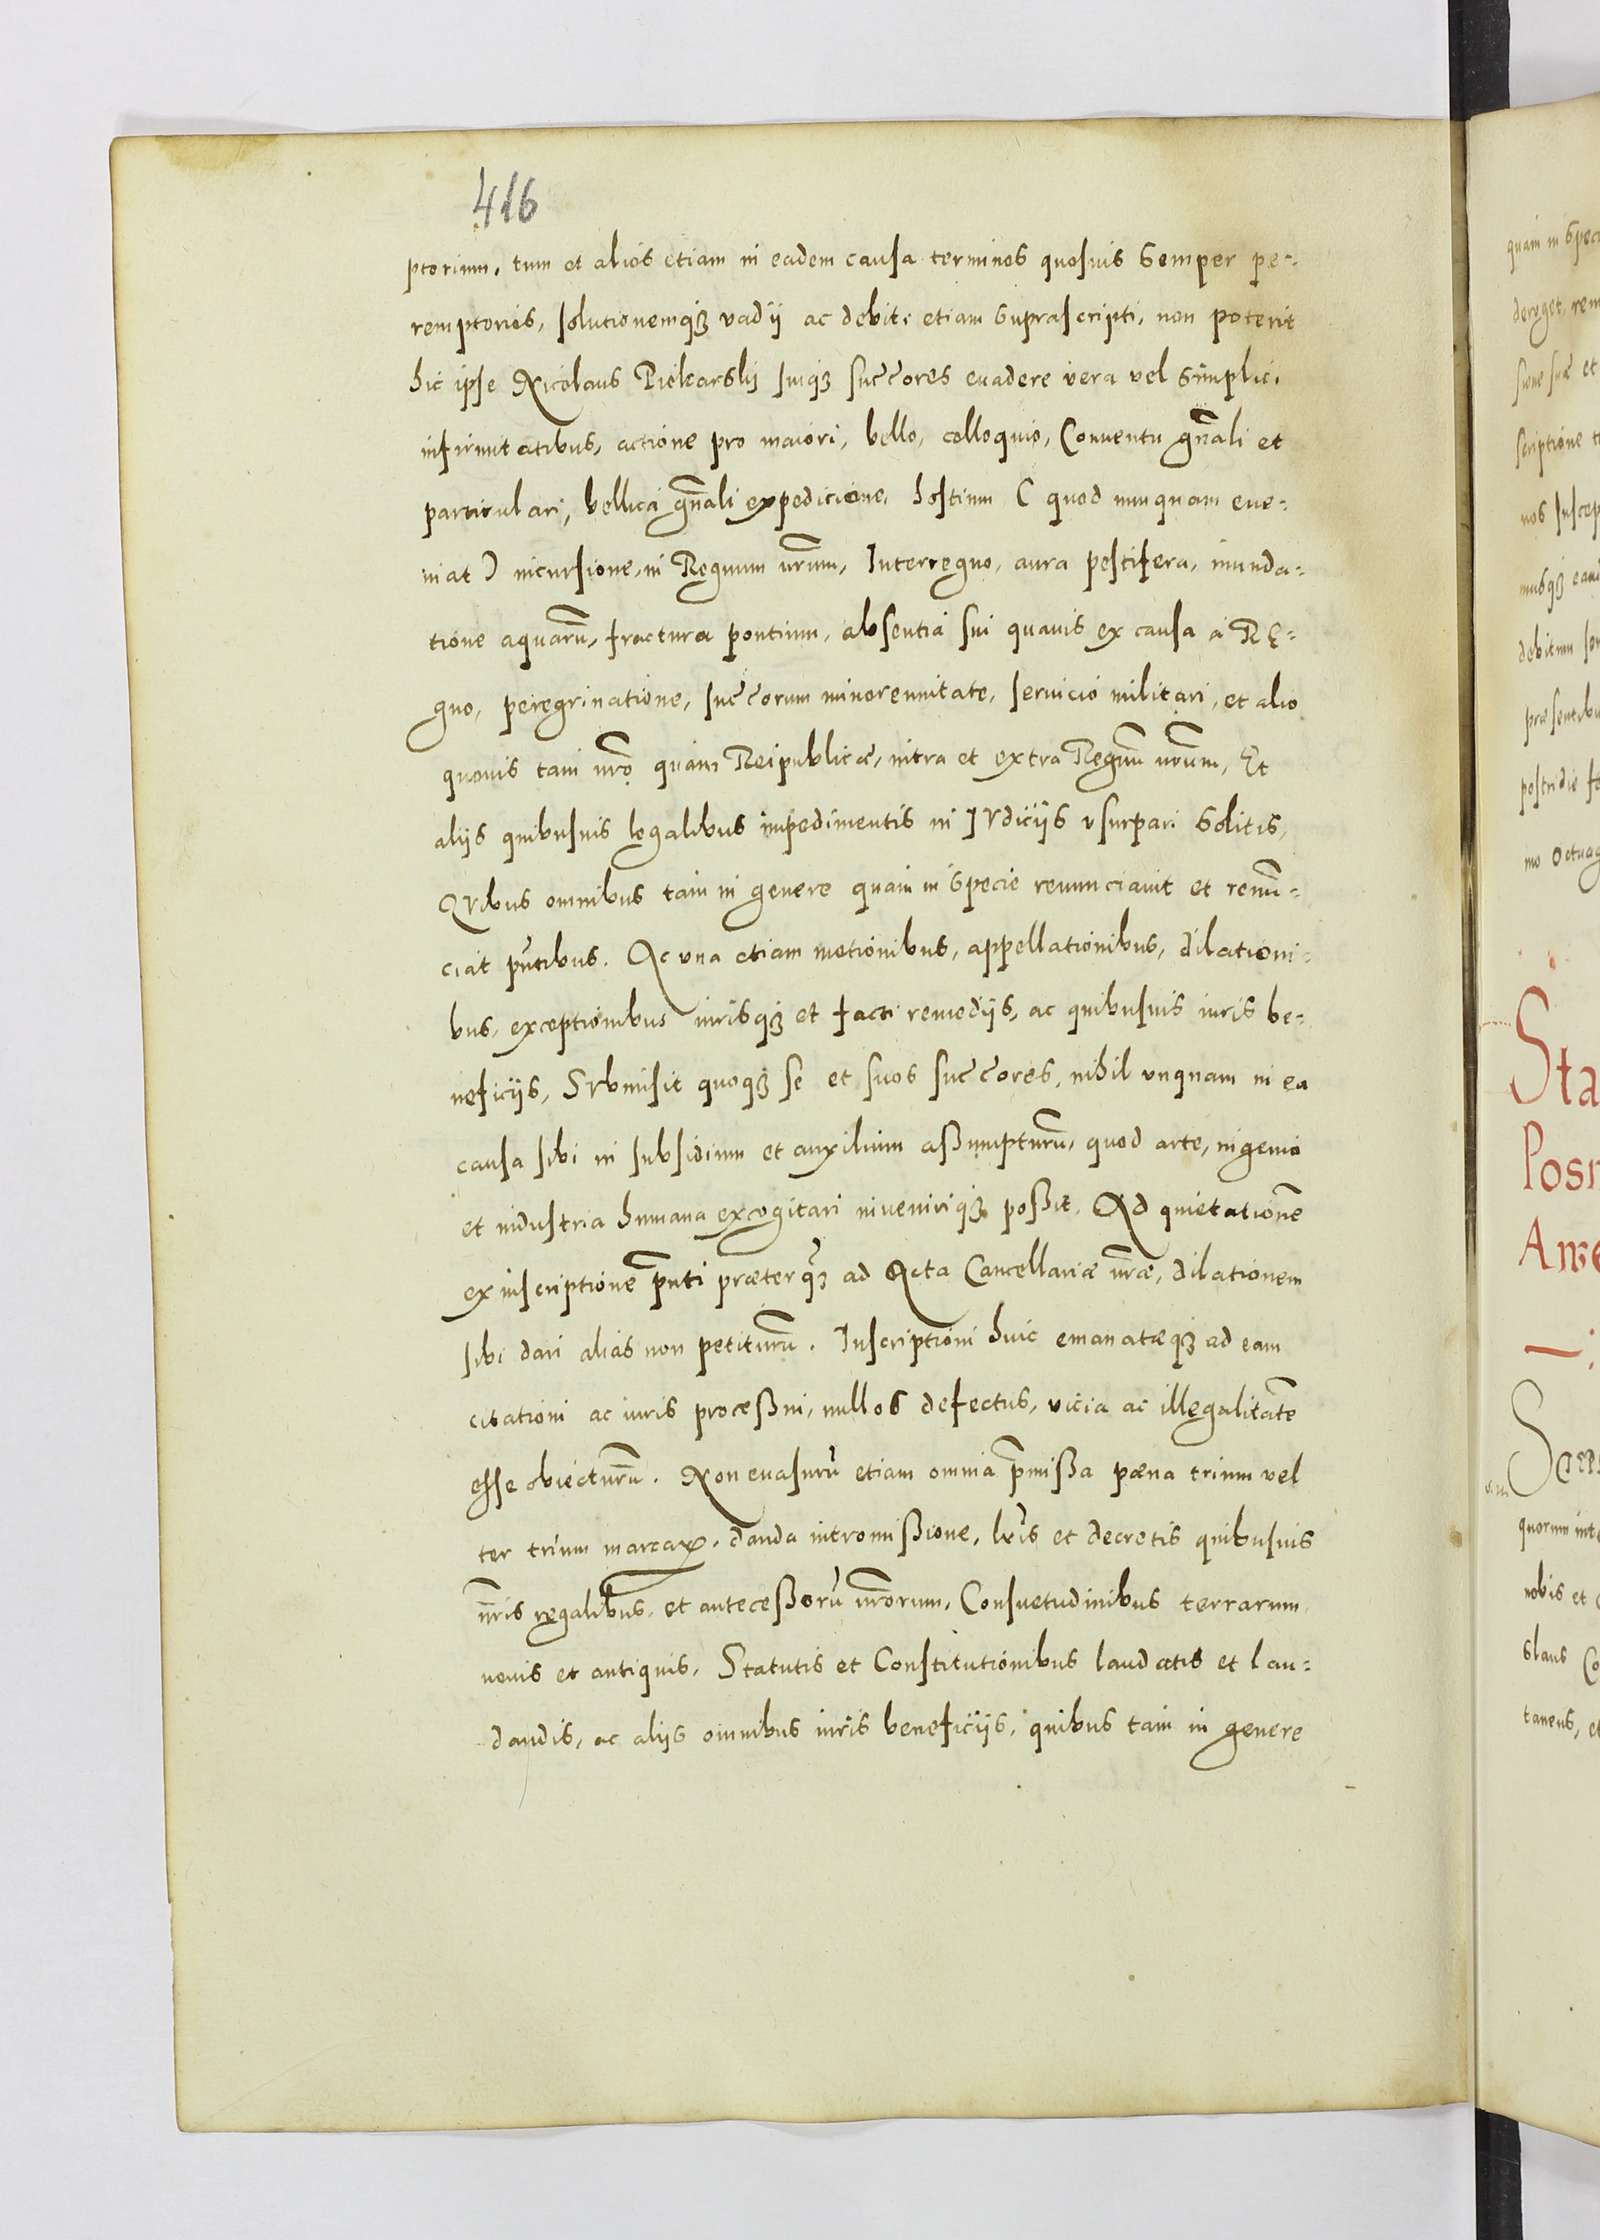 416
ptorium, tum et alios etiam in eadem causa terminos quosuis semper pe-
remptorios, solutionemq3 vadij ac debiti etiam suprascripti, non poterit
hic ipse Nicolaus Piekarskij suiq3 succores euadere vera vel simplici
infirmitatibus, actione pro maiori, bello, colloquio, Conuentu gnali et
particulari, bellica gnali expedicione, hostium ( quod nunquam eue-
niat ) incursione, in Regnum nrum, Interregno, aura pestifera, inunda-
tione aquaru, fractura pontium, absentia sui quauis ex causa a Re-
gno, peregrinatione, succorum minorennitate, seruicio militari, et alio
quouis tam nro quam Reipublicæ, intra et extra Regnu nrum, Et
alijs quibusuis legalibus impedimentis in IVdicijs vsurpari solitis,
QVibus omnibus tam in genere quam in specie renunciauit et renu-
ciat pntibus. Ac vna etiam motionibus, appellationibus, dilationi-
bus, exceptionibus iurisq3 et facti remedijs, ac quibusuis iuris be-
neficijs, SVbmisit quoq3 se et suos succores, nihil vnquam in ea
causa sibi in subsidium et auxilium aßumpturu, quod arte, ingenio
et industria humana excogitari inueniriq3 poßit. Ad quietatione
ex inscriptione pnti præterq3 ad Acta Cancellariæ nræ, dilationem
sibi dari alias non petituru. Inscriptioni huic emanatæq3 ad eam
citationi ac iuris proceßui, nullos defectus, vicia ac illegalitate
esse obiecturu. Non euasuru etiam omnia pmißa pæna trium vel
ter trium marcar, danda intromißione, lris et decretis quibusuis
nris regalibus, et anteceßoru nrorum, Consuetudinibus terrarum
nouis et antiquis, Statutis et Constitutionibus laudatis et lau-
dandis, ac alijs omnibus iuris beneficijs, quibus tam in genere
quam in speci
deroget, ren
sione suæ et
scriptione
nos suscep
musq3 eand
debitum
præsentibu
postridie
mo octuag
Sta
Posn
Ante
quorum int
nobis et
slaus Co
taneus, et